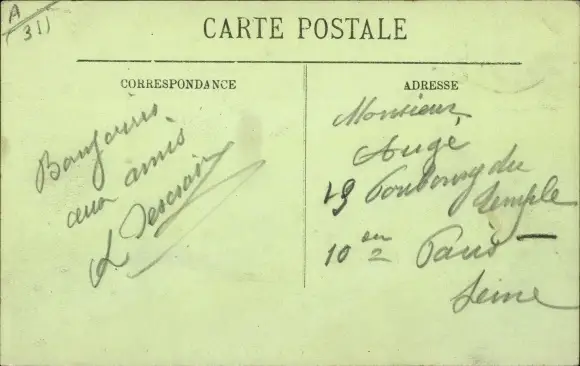 A
(31)
CARTE POSTALE
CORRESPONDANCE
ADRESSE
Bonjours
aux amis
Monsieur
Augé
49 Foubourg du
Temple
10 em Paris
Seine